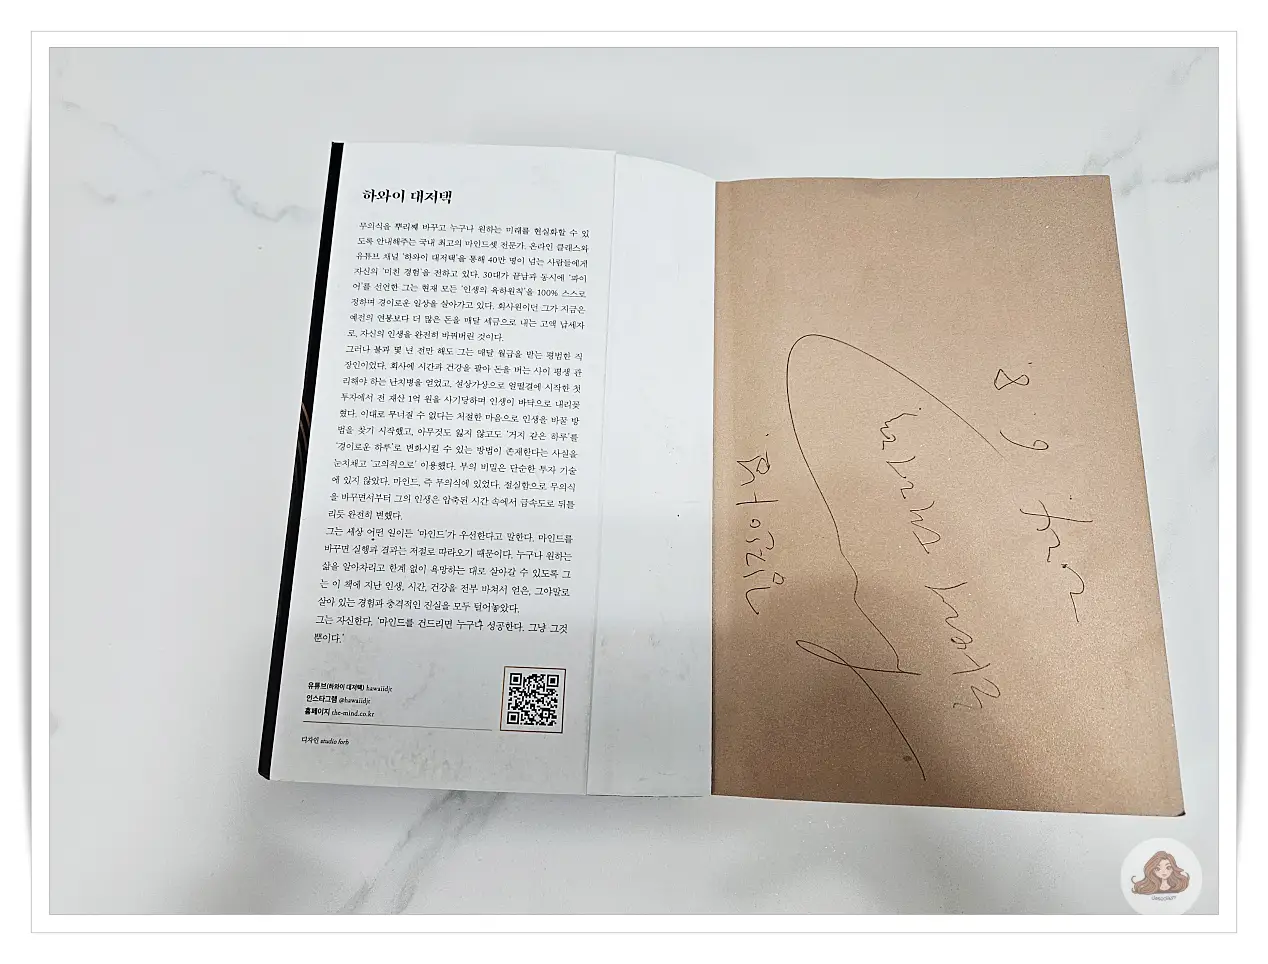 하와이 대저택
무의식을 뿌리째 바꾸고 누구나 원하는 미래를 현실화할 수 있
도록 안내해주는 국내 최고의 마인드셋 전문가. 온라인 클래스와
유튜브 채널 ‘하와이 대저택’을 통해 40만 명이 넘는 사람들에게
자신의 ‘미친 경험’을 전하고 있다. 30대가 끝남과 동시에 ‘파이
어’를 선언한 그는 현재 모든 ‘인생의 육하원칙’을 100% 스스로
정하며 경이로운 일상을 살아가고 있다. 회사원이던 그가 지금은
예전의 연봉보다 더 많은 돈을 매달 세금으로 내는 고액 납세자
로, 자신의 인생을 완전히 바꿔버린 것이다.
그러나 불과 몇 년 전만 해도 그는 매달 월급을 받는 평범한 직
장인이었다. 회사에 시간과 건강을 팔아 돈을 버는 사이 평생 관
리해야 하는 난치병을 얻었고, 설상가상으로 얼떨결에 시작한 첫
투자에서 전 재산 1억 원을 사기당하며 인생이 바닥으로 내리꽂
혔다. 이대로 무너질 수 없다는 처절한 마음으로 인생을 바꿀 방
법을 찾기 시작했고, 아무것도 잃지 않고도 ‘거지 같은 하루’를
‘경이로운 하루’로 변화시킬 수 있는 방법이 존재한다는 사실을
눈치채고 ‘고의적으로’ 이용했다. 부의 비밀은 단순한 투자 기술
에 있지 않았다. 마인드, 즉 무의식에 있었다. 절실함으로 무의식
을 바꾸면서부터 그의 인생은 압축된 시간 속에서 급속도로 뒤틀
리듯 완전히 변했다.
그는 세상 어떤 일이든 ‘마인드’가 우선한다고 말한다. 마인드를
바꾸면 실행과 결과는 저절로 따라오기 때문이다. 누구나 원하는
삶을 알아차리고 한계 없이 욕망하는 대로 살아갈 수 있도록 그
는 이 책에 지난 인생, 시간, 건강을 전부 바쳐서 얻은, 그야말로
살아 있는 경험과 충격적인 진실을 모두 털어놓았다.
그는 자신한다. ‘마인드를 건드리면 누구나 성공한다. 그냥 그것
뿐이다.’
유튜브(하와이 대저택) hawaiidjt
인스타그램 @hawaiidjt
홈페이지 the-mind.co.kr
디자인 studio forb